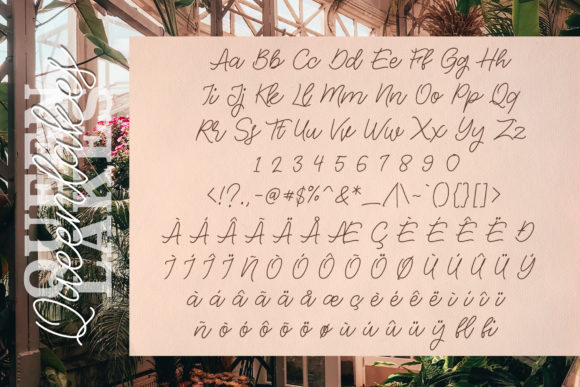 QUEEN
LAKES
Queenlakes
Aa Bb Cc Dd Ee Ff Gg Hh
Ii Jj Kk Ll Mm Nn Oo Pp Qq
Rr Ss Tt Uu Vv Ww Xx Yy Zz
1 2 3 4 5 6 7 8 9 0
<!?.,-@#$%^&*_/|\~`(){}[]>
À Á Â Ã Ä Å Æ Ç È É Ê Ë Ð
Ì Í Î Ï Ñ Ò Ó Ô Õ Ö Ø Ù Ú Û Ü Ý
à á â ã ä å æ ç è é ê ë ì í î ï
ñ ò ó ô õ ö ø ù ú û ü ÿ fl fi